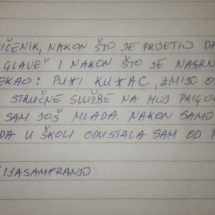 UČENIK, NAKON ŠTO JE PRIJETIO DA
GLAVE" I NAKON ŠTO JE NASRN
EKAO: PU*I KU*AC, ZMIJO
STRUČNE SLUŽBE NA MOJ PRIGO
SAM JOŠ MLADA. NAKON SAMO
DA U ŠKOLI ODUSTALA SAM OD
#IJASAMFRANJO